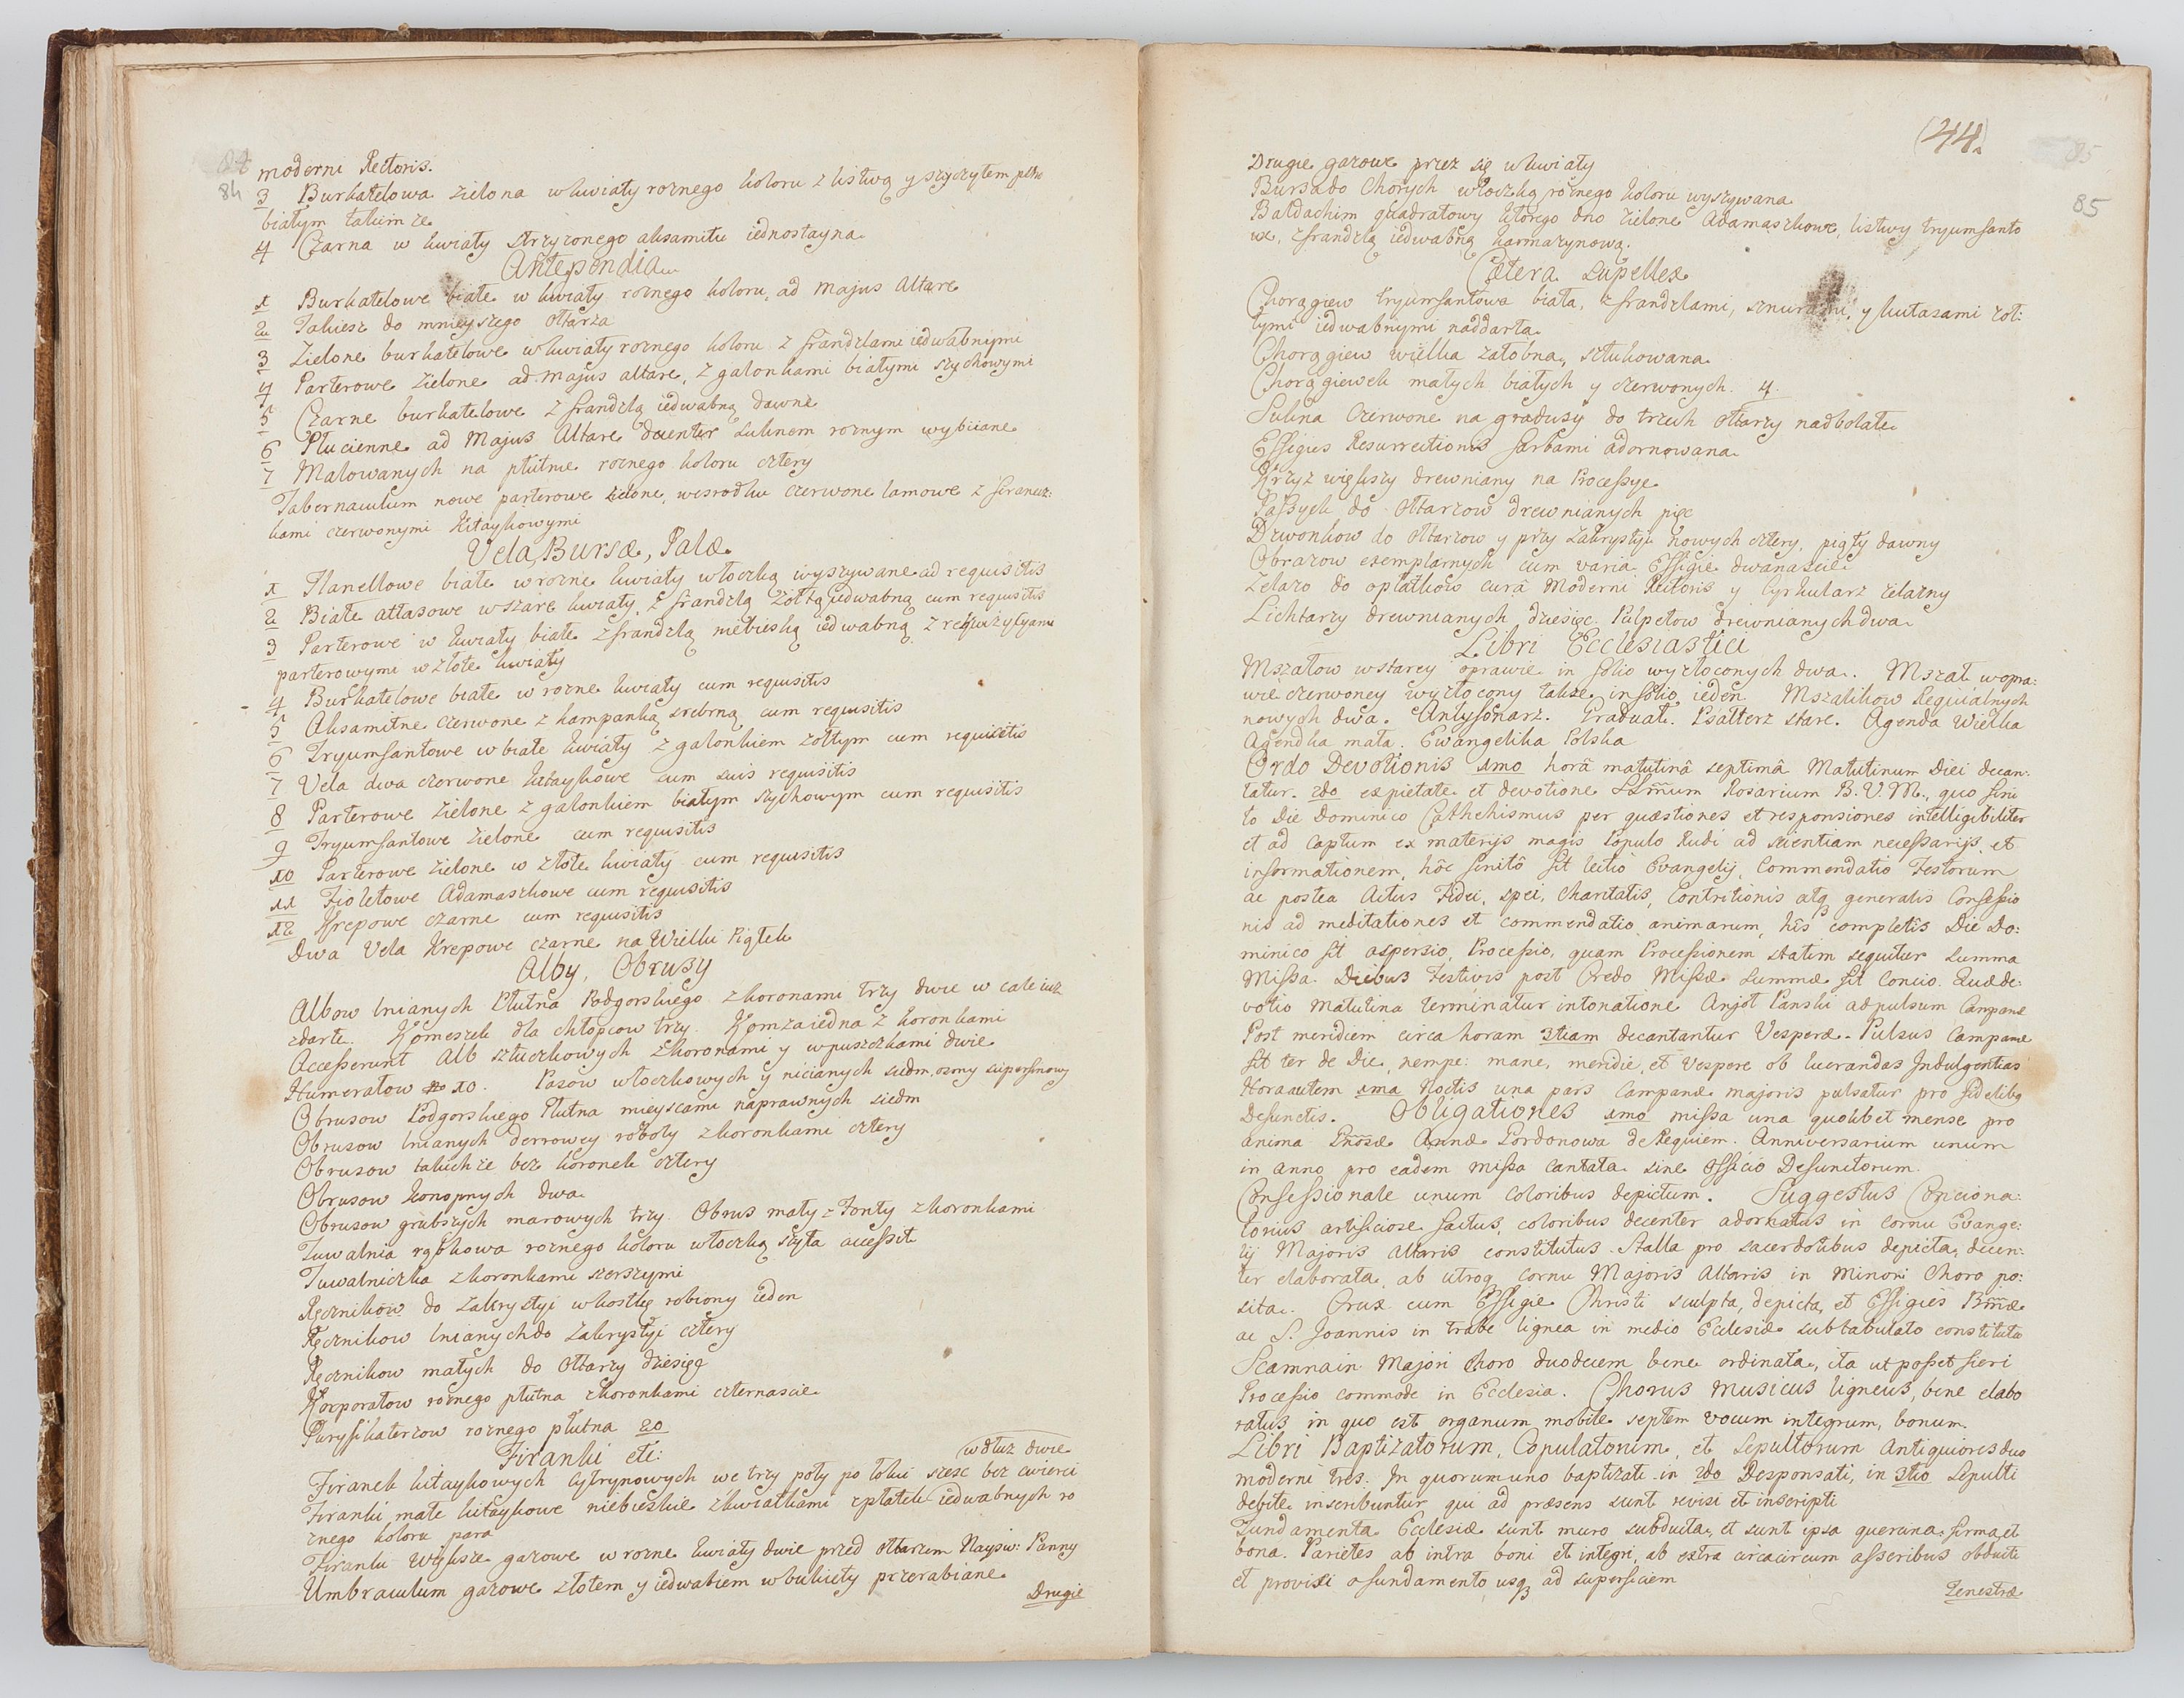 84
moderni Rectoris.
3 Burkatelowa zielona w kwiaty roznego koloru z listwą y szczytem
białym takim ze
4 Czarna w kwiaty strzyzonego aksamitu iednostayna
Antependia
1 Burkatelowe białe w kwiaty roznego koloru, ad majus Altare
2 Takiesz do mnieyszego Ołtarza
3 Zielone burkatelowe w kwiaty roznego koloru z frandzlami iedwabnymi
4 Parterowe zielone ad majus altare, z galonkami białymi szychowymi
5 Czarne burkatelowe z frandzlą iedwabną dawne
6 Płucienne ad Majus Altare decenter suknem roznym wybiiane
7 Malowanych na płutnie roznego koloru cztery
Tabernaculum nowe parterowe zielone, wesrodku czerwone lamowe z firanecz:
kami czerwonymi kitaykowymi
Vela, Bursæ, Palæ
1 Flanellowe białe w rozne kwiaty włoczką wyszywane ad requisitis
2 Białe atlasowe w szare kwiaty, z frandzlą żółtą iedwabną cum requisitis
3 Parterowe w kwiaty białe z frandzlą niebieską iedwabną z rekwizycyami
parterowymi w złote kwiaty
4 Burkatelowe białe w rozne kwiaty cum requisitis
5 Aksamitne czerwone z kampanką srebrną cum requisitis
6 Tryumfantowe w białe kwiaty z galonkiem zołtym cum requisitis
7 Vela dwa czerwone kitaykowe cum suis requisitis
8 Parterowe zielone z galonkiem białym szychowym cum requisitis
9 Tryumfantowe zielone cum requisitis
10 Parterowe zielone w złote kwiaty cum requisitis
11 Fioletowe Adamaszkowe cum requisitis
12 Krepowe czarne cum requisitis
Dwa Vela Krepowe czarne na Wielki Piątek
Alby, Obrusy
Albow lnianych Płutna Podgorskiego z koronami trzy dwie w cale iuż
zdarte. Komeszek dla chłopcow trzy. Komza iedna z koronkami
Accesserunt Alb sztuczkowych z koronami y wpuszczkami dwie
Humerałow 10. Pasow włoczkowych y nicianych siedm, osmy
Obrusow Podgorskiego Płutna mieyscami naprawnych siedm
Obrusow lnianych derrowey roboty z koronkami cztery
Obrusow takich ze bez koronek cztery
Obrusow konopnych dwa
Obrusow grubszych marowych trzy. Obrus mały z Fonty z koronkami
Tuwalnia rąbkowa roznego koloru włoczką szyta accessit
Tuwalniczka z koronkami szerszymi
Ręcznikow do Zakrystyi w kostkę robiony ieden
Ręcznikow lnianych do Zakrystyi cztery
Ręcznikow małych do Ołtarzy dziesięć
Korporałow roznego płutna z koronkami czternascie
Puryfikaterzow roznego płutna 20
Firanki etc:
wdłuz dwie
Firanek kitaykowych cytrynowych we trzy poły po łokci szesc bez cwierci
Firanki małe kitaykowe niebieskie z kwiatkami z płatek iedwabnych ro
znego koloru para
Firanki większe gazowe w rozne kwiaty dwie przed Ołtarzem Nayśw: Panny
Umbraculum gazowe złotem y iedwabiem w bukiety przerabiane
Drugie
(44.
85
Drugie gazowe przez się w kwiaty
Bursa do Chorych włoczką roznego koloru wyszywana
Baldachim quadratowy ktorego dno zielone Adamaszkowe, listwy tryumfanto
we, z frandzlą iedwabną karmazynową.
Cætera Supellex
Chorągiew tryumfantowa biała, z frandzlami, sznurami, y kutasami zoł:
tymi iedwabnymi naddarta
Chorągiew wielka załobna, sztukowana
Chorągiewek małych białych y czerwonych. 4.
Sukna czerwone na gradusy do trzech Ołtarzy nadbolałe
Effigies Resurrectionis farbami adornowana
Krzyz większy drewniany na Processye
Passyek do Ołtarzow drewnianych pięc
Dzwonkow do Ołtarzow y przy Zakrystyi nowych cztery, piąty dawny
Obrazow exemplarnych cum varia Effigie dwanascie
Zelazo do opłatkow curâ Moderni Rectoris y Cyrkularz zelazny
Lichtarzy drewnianych dziesięc. Pulpetow drewnianych dwa
Libri Ecclesiastici
Mszałow w starey oprawie in folio wyzłoconych dwa. Mszał w opra:
wie czerwoney wyzłocony takze in folio ieden. Mszalikow Requialnych
nowych dwa. Antyfonarz. Graduał. Psałterz stare. Agenda Wielka
Agendka mała. Ewangelika Polska
Ordo Devotionis 1mo horâ matutinâ septimâ Matutinum Diei decan:
tatur. 2do ex pietate et devotione SSmum Rosarium B. V. M., quo fini
to Die Dominico Cathehismus per quæstiones et responsiones intelligibiliter
et ad captum ex materijs magis Populo Rudi ad scientiam necessarijs, et
informationem, hôc finitô fit lectio Evangelij, Commendatio Festorum
ac postea Actus Fidei, spei, Charitatis, Contritionis atq generalis Confessio
nis ad meditationes et commendatio animarum, hîs completîs Die Do:
minico fit aspersio, Processio, quam Processionem statim sequitur Summa
Missa. Diebus Festivis post Credo Missæ Summæ fit Concio. Quæ de:
votio Matutina terminatur intonatione Anjoł Panski ad pulsum Campanæ
Post meridiem circa horam 3tiam decantantur Vesperæ. Pulsus Campanæ
fit ter de Die, nempe: mane, meridie, et Vespere ob lucrandas Indulgentias
Hora autem 1ma Noctis una pars Campanæ majoris pulsatur pro fidelibq
Defunctis. Obligationes 1mo missa una quolibet mense pro
anima Annæ Gordonowa de Requiem. Anniversarium unum
in anno pro eadem missa cantata sine Officio Defunctorum.
Confessionale unum coloribus depictum. Suggestus Conciona:
torius artificiose factus, coloribus decenter adornatus in cornu Evange:
lij Majoris Altaris constitutus. Stalla pro sacerdotibus depicta, decen:
ter elaborata, ab utroq cornu Majoris Altaris in Minori Choro po:
sita. Crux cum Effigie Christi sculpta, depicta, et Effigies Bmæ
ac S. Joannis in trabe lignea in medio Ecclesiæ subtabulato constituta
Scamna in Majori Choro duodecem bene ordinata, ita ut posset fieri
Processio commode in Ecclesia. Chorus musicus ligneus, bene elabo
ratus in quo est organum mobile septem vocum integrum, bonum
Libri Baptizatorum, Copulatorum, et Sepultorum antiquiores duo
moderni tres. In quorum uno baptizati in 2do Desponsati, in 3tio Sepulti
debite inscribuntur qui ad præsens sunt revisi et inscripti
Fundamenta Ecclesiæ sunt muro subducta, et sunt ipsa quercina firma et
bona. Parietes ab intra boni et integri, ab extra circacircum asseribus obducti
et provisi a fundamento usq ad superficiem
Fenestræ